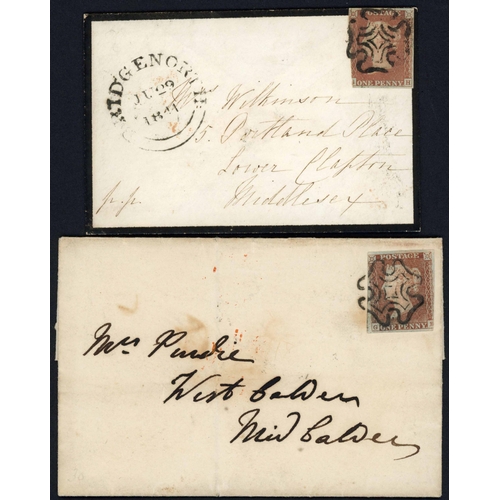 BRIDGENORTH
JU 29
1841
POSTAGE
ONE PENNY
Mrs Wilkinson
5. Portland Place
Lower Clapton
Middlesex
p.p.
POSTAGE
ONE PENNY
Mrs Purdie
West Calder
Mid Calder